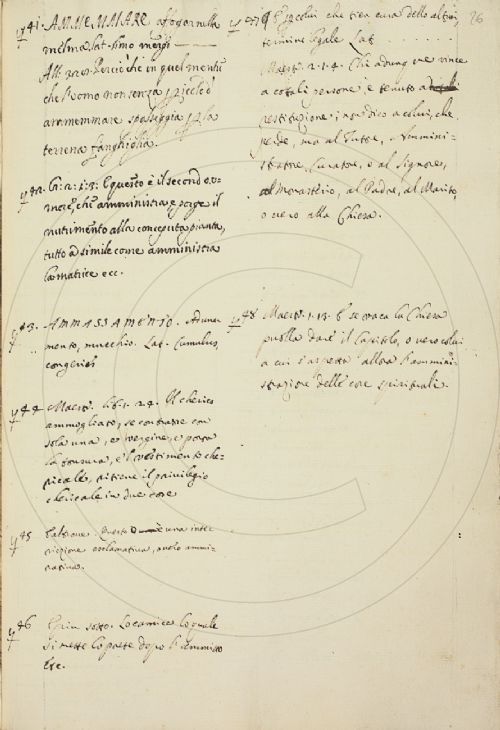 41. AMMEMMARE affogar nella
melma Lat. limo mergi
All. 322. Perciò che in quel mentre
che l'omo non senza pericolo d'
ammemmare spasseggia p la
terrena fanghiglia.
42. 2. 1. 3. E questo è il secondo o-
more, che amministra, e porge il
nutrimento alla conceputa pianta,
tutto a simile come amministra
la matrice ecc.
43. AMMASSAMENTO. Aduna-
mento, mucchio. Lat. Cumulus,
congeries
44 Maestr. lib. 1. 24. Il cherico
ammogliato, se contrae con
sola una, e vergine, e porta
la tonsura, e 'l vestimento che-
ricale, ritiene il privilegio
chericale in due cose
45 Salvione. Questo è una inter-
iezione esclamativa, ammi-
rativa.
46 sotto. Lo camice lo quale
si mette lo prete dopo l'ammitto
Etc.
26
47 colui che tien cura dello altrui,
termine legale Lat.
Maestr. 2. 1. 4. Chi adunque vince
a cotali persone, è tenuto a
restituzione; non dico a colui, che
perde, ma al Tutore, o Ammini-
stratore, Curatore, o al Signore,
al Monasterio, al Padre, al Marito,
o vero alla Chiesa.
48 Maestr. 1. 13. E se vaca la Chiesa
puolla dare il Capitolo, o vero colui
a cui s'aspetta allora l'ammini-
strazione delle cose spirituali.